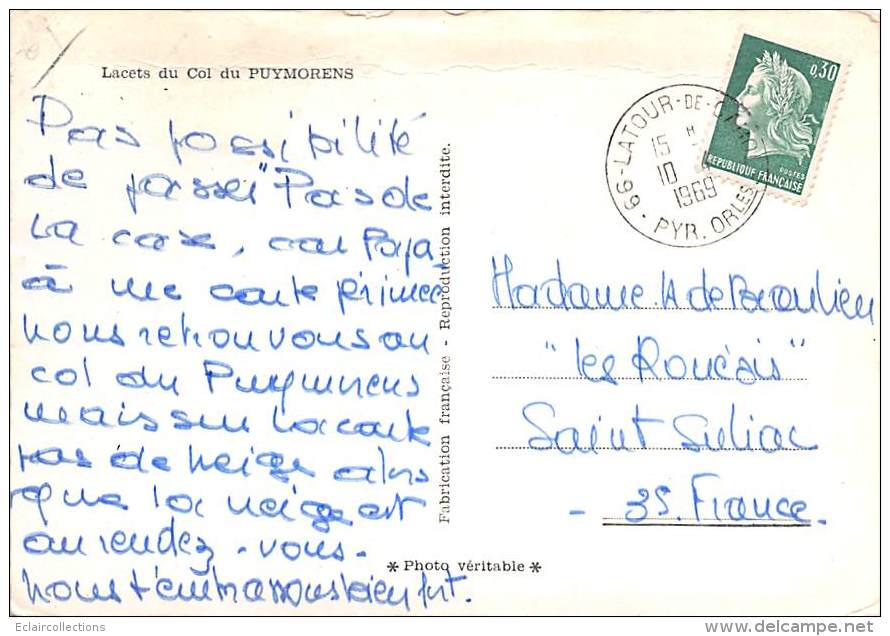 Lacets du Col du PUYMORENS
Pas possibilité
de passer "Pas de
La case, car Papa
à une carte périmée
nous retrouvons au
col du Puymorens
mais sur la carte
pas de neige alors
que la neige est
au rendez-vous-
Nous t'embrassons bien fort.
Fabrication française - Reproduction interdite.
* Photo véritable *
0,30
POSTES
REPUBLIQUE FRANÇAISE
66-LATOUR-DE-CAROL
15 H
10
1969
PYR. ORLES
Madame A de Beaulieu
"les Rouésis"
Saint Suliac
- 35. France.
Eclaircollections
www.delcampe.net